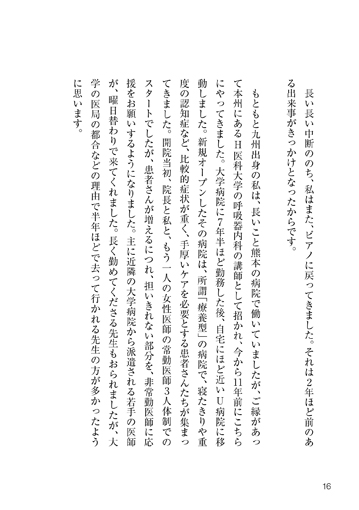 長い長い中断ののち、私はまた、ピアノに戻ってきました。それは２年ほど前のあ
る出来事がきっかけとなったからです。
もともと九州出身の私は、長いこと熊本の病院で働いていましたが、ご縁があっ
て本州にあるＨ医科大学の呼吸器内科の講師として招かれ、今から11年前にこちら
にやってきました。大学病院に７年半ほど勤務した後、自宅にほど近いＵ病院に移
動しました。新規オープンしたその病院は、所謂「療養型」の病院で、寝たきりや重
度の認知症など、比較的症状が重く、手厚いケアを必要とする患者さんたちが集まっ
てきました。開院当初、院長と私と、もう一人の女性医師の常勤医師３人体制での
スタートでしたが、患者さんが増えるにつれ、担いきれない部分を、非常勤医師に応
援をお願いするようになりました。主に近隣の大学病院から派遣される若手の医師
が、曜日替わりで来てくれました。長く勤めてくださる先生もおられましたが、大
学の医局の都合などの理由で半年ほどで去って行かれる先生の方が多かったよう
に思います。
16